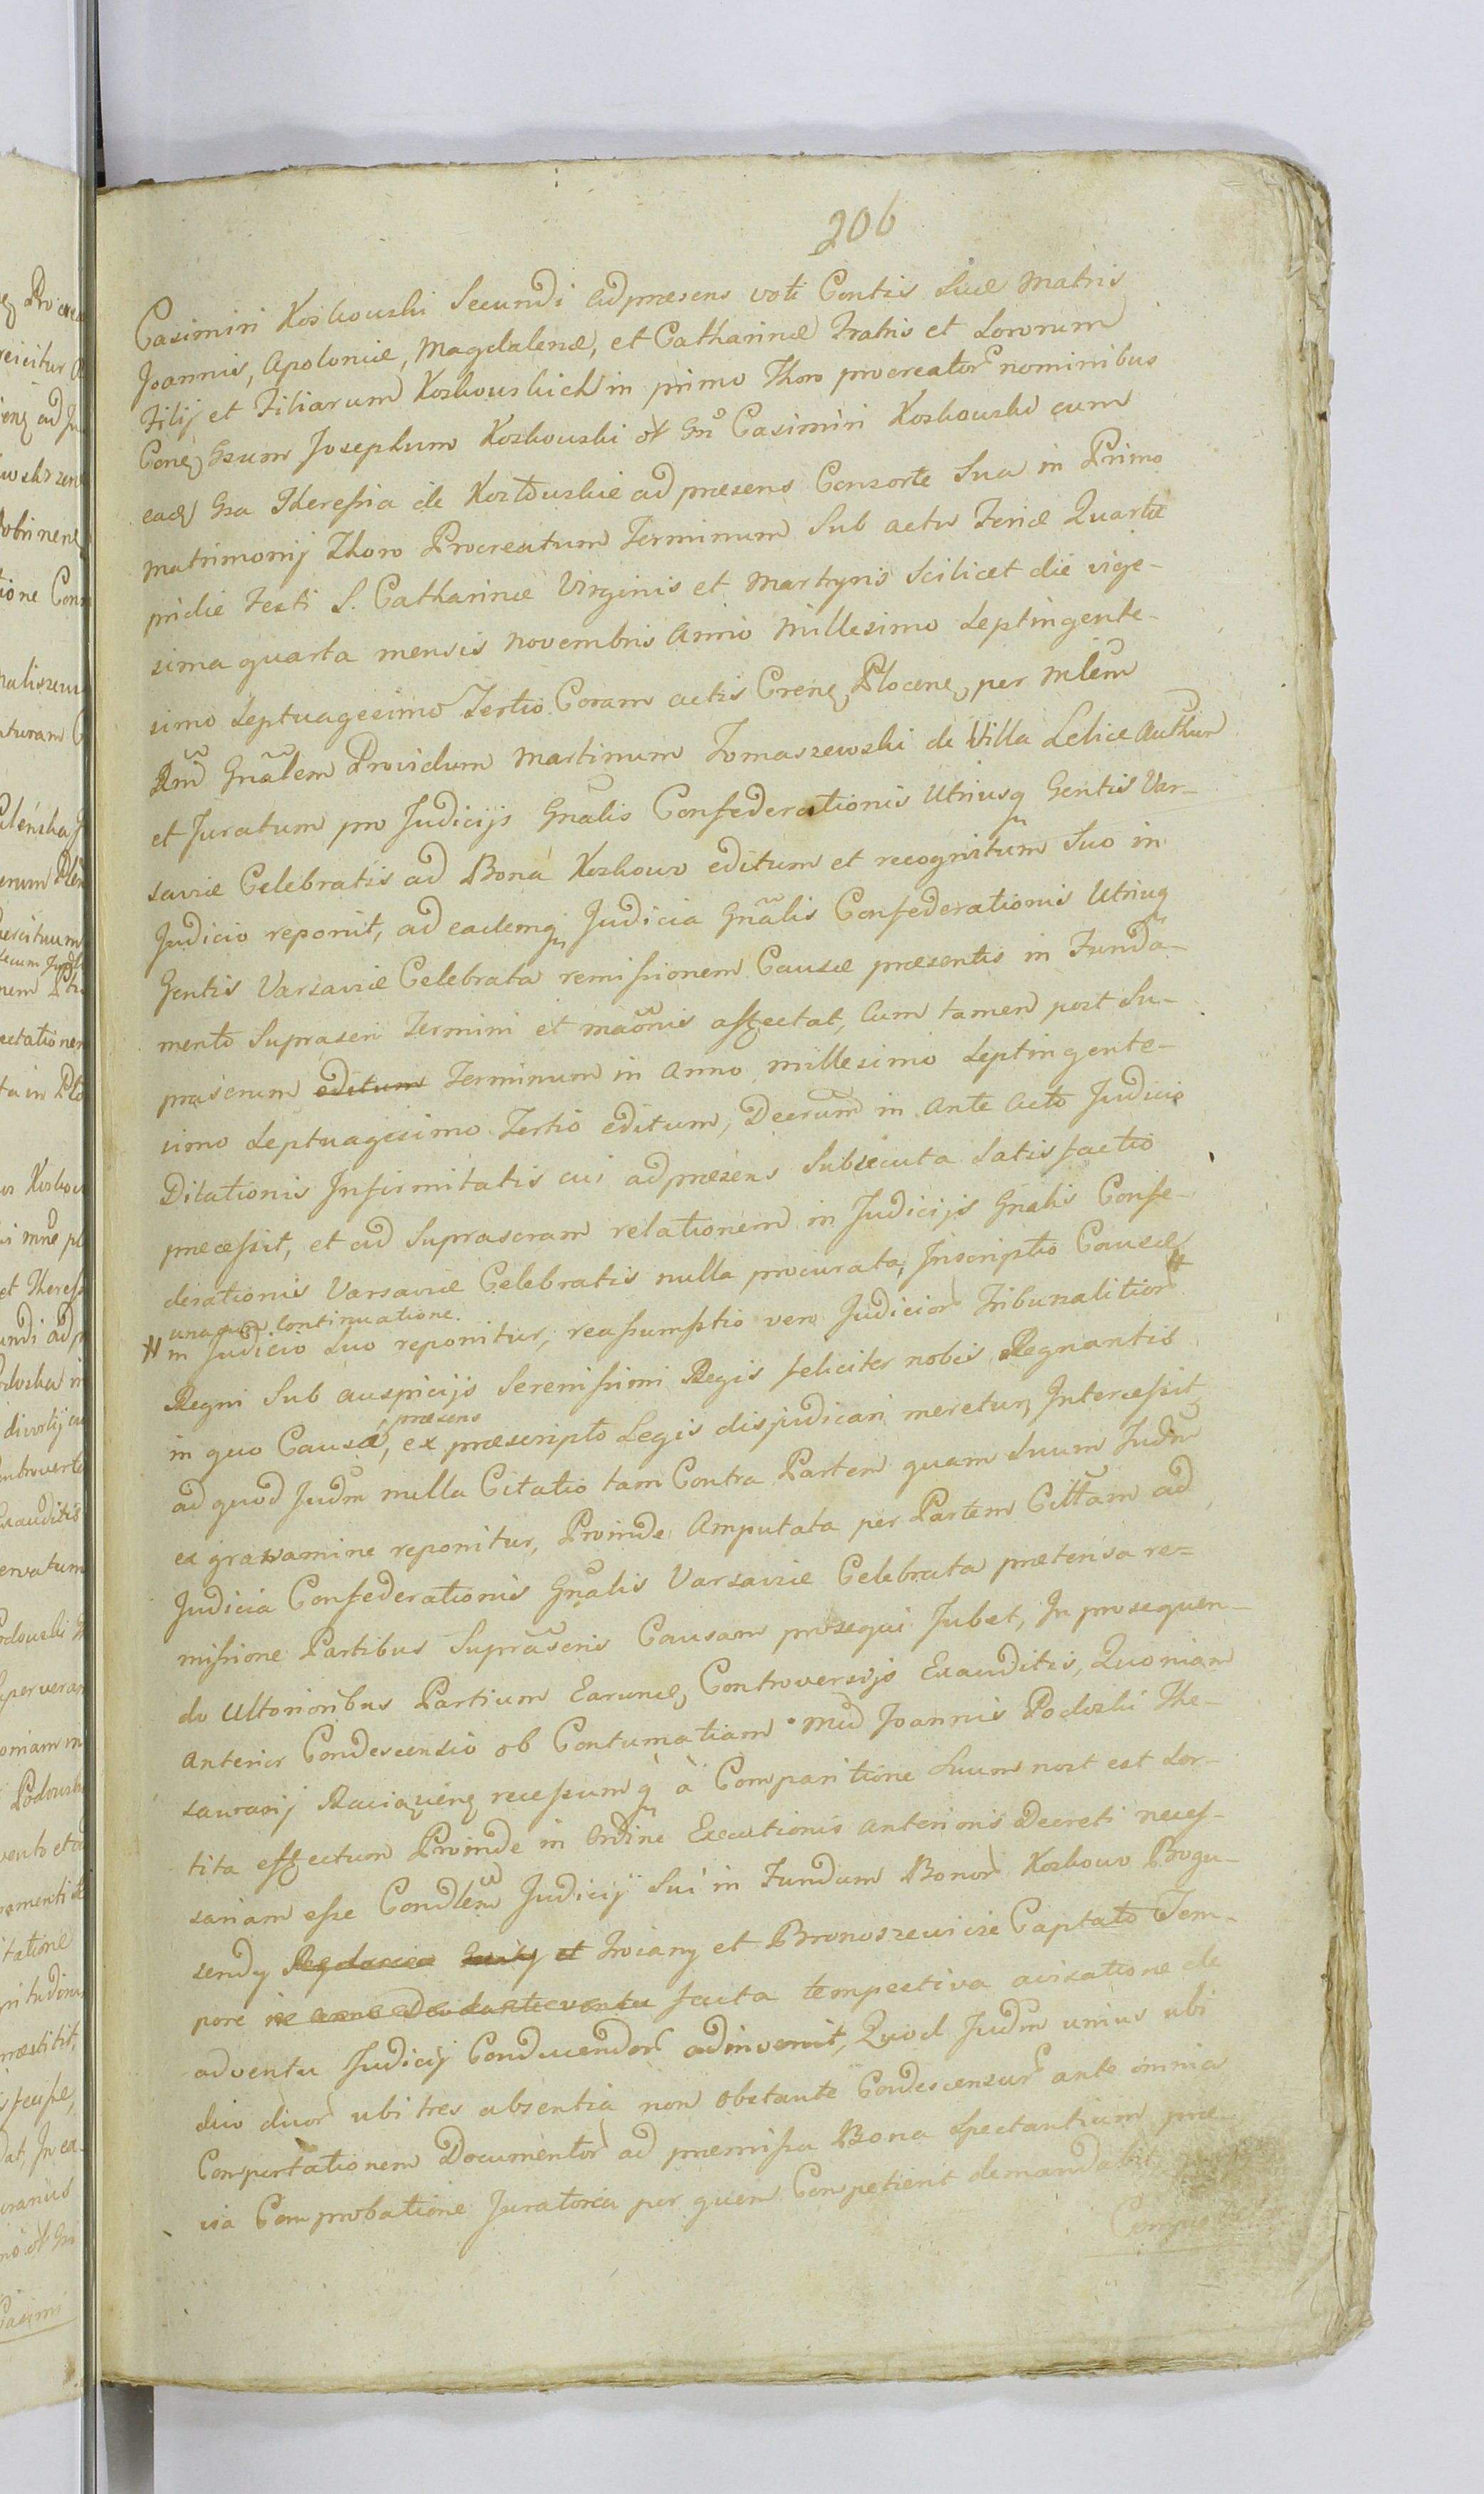 206
Casimiri Koskouski Secundi ad præsens voti Contis Suæ Matris
Joannis, Apoloniæ, Magdalenæ, et Catharinæ Fratris et Sororum
Filij et Filiarum Koskouskich in primo Thoro procreator nominibus
Coneq Gsum Josephum Koskouski ol Gñ Casimiri Koskouski cum
eadq Gsa Theressia de Kostouskie ad præsens Consorte Sua in Primo
Matrimonij Thoro Procreatum Terminum Sub actu Feriæ Quartæ
pridie Festi S. Catharinæ Virginis et Martyris Scilicet die vige-
sima quarta mensis Novembris Anno Millesimo Septingente-
simo Septuagesimo Tertio Coram actis Crens Plocens per Mlem
Rm̃ Gñalem Providum Martinum Tomaszewski de Villa Lelice Authum
et Juratum pro Judicijs Gñalis Confederationis Utriusq Gentis Var-
saviæ Celebratis ad Bona Koskowo editum et recognitum Suo in
Judicio reponit, ad eademq Judicia Gñalis Confederationis Utriusq
Gentis Varsaviæ Celebrata remissionem Causæ præsentis in Funda-
mento Suprascri Termini et mãonis affectat, Cum tamen post Su-
prascrum editum Terminum in Anno millesimo Septingente-
simo Septuagesimo Tertio editum, Decrum in Ante Acto Judicio
Dilationis Infirmitatis cui ad præsens Subsecuta Satisfactio
præcessit, et ad Suprascram relationem in Judicijs Gnalis Confe-
derationis Varsaviæ Celebratis nulla procurata, Inscriptio Causæ
una cum Continuatione.
in Judicio Suo reponitur, reassumptio vero Judicior Tribunalitior
Regni Sub auspicijs Serenissimi Regis feliciter nobis Regnantis
præsens
in quo Causa, ex præscripto Legis disjudicari meretur, Intercessit
ad quod Judm nulla Citatio tam Contra Partem quam Suum Judm
ex gravamine reponitur, Proinde Amputata per Partem Cittam ad
Judicia Confederationis Gñalis Varsaviæ Celebrata prætensa re-
missione Partibus Suprascris Causam prosequi Jubet, In prosequen-
do Ulterioribus Partium Earundq Controversijs Exauditis, Quoniam
Anterior Condescensio ob Contumatiam Mcd Joannis Podoski The-
saurarij Raciązens recessumq à Comparitione Suum non est Sor-
tita effectum Proinde in Ordine Executionis Anterioris Decreti neces-
sariam esse Condlem Judicij Sui in Fundum Bonor Koskowo Bogu-
sendy et Trciany et Bronoszewicze Captato Tem-
pore facta tempestiva avisatione de
adventu Judicij Conducendor adinvenit, Quod Judm unius ubi
duo duor ubi tres absentia non obstante Condescensur ante omnia
Comportationem Documentor ad præmissa Bona spectantium præ-
via Comprobatione Juratoria per quem Competierit demandabit